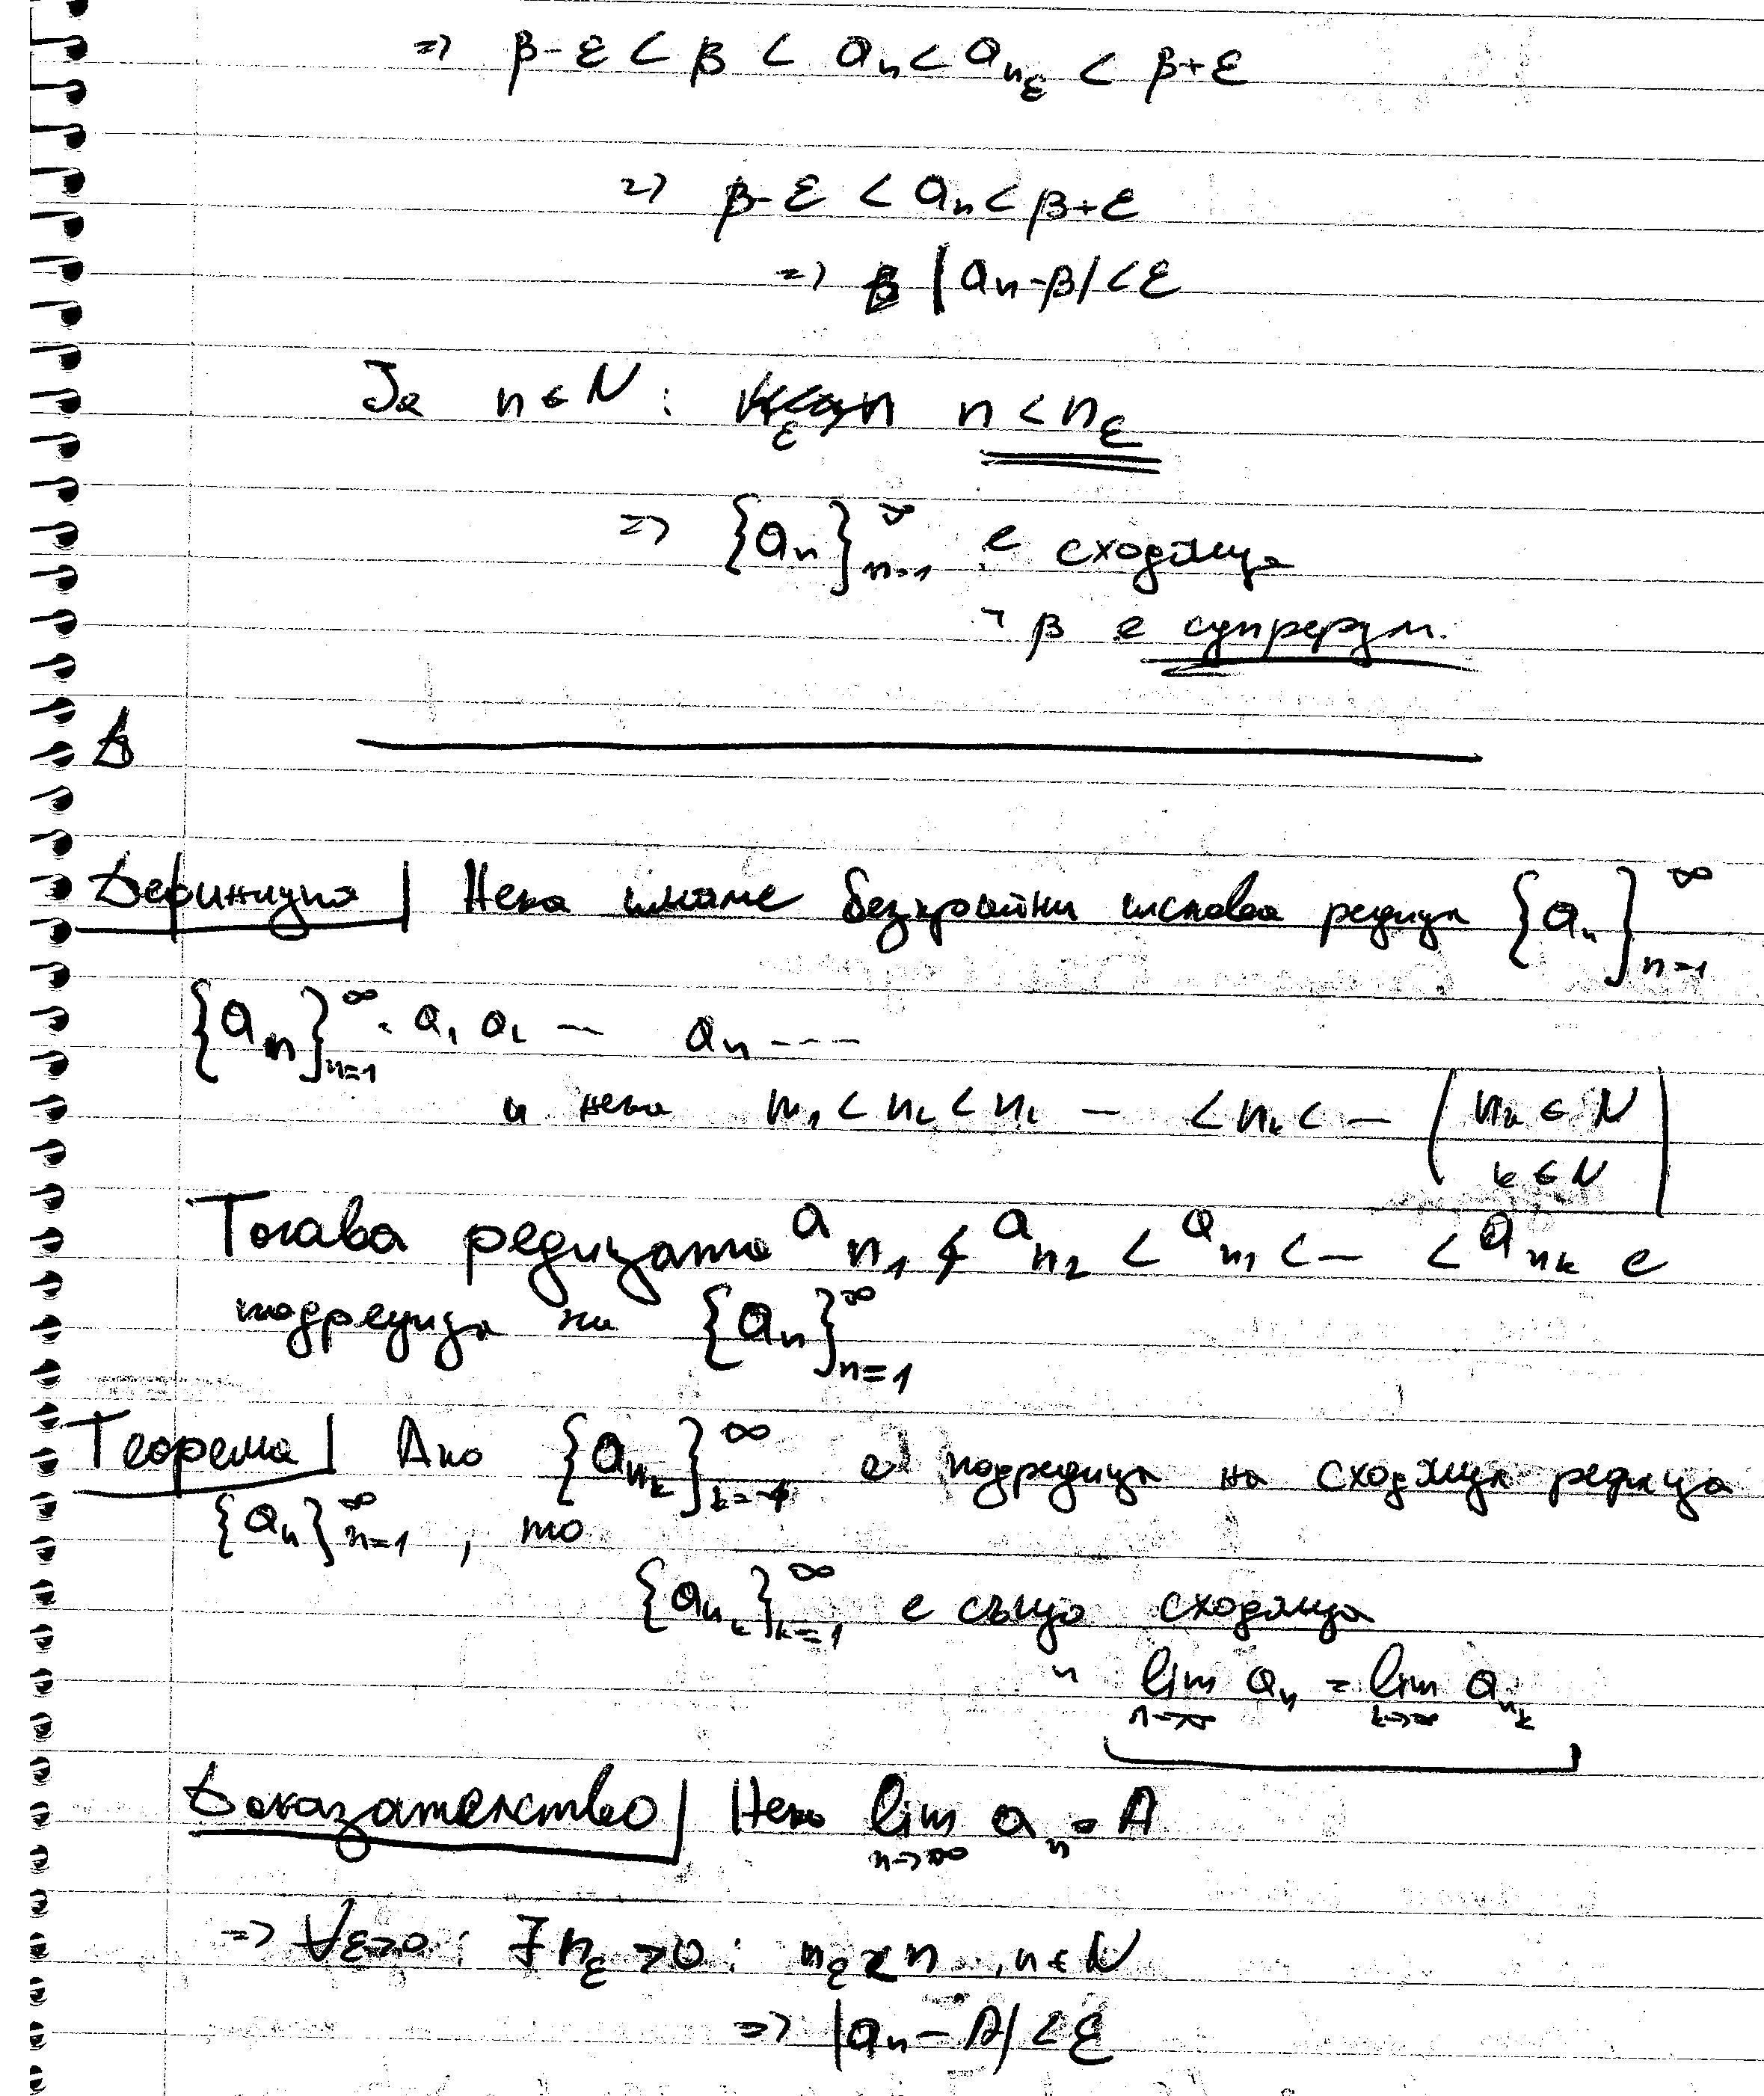 => β-ε < β < aₙ < a_{n_ε} < β+ε
=> β-ε < aₙ < β+ε
=> |aₙ-β| < ε
За n ∈ N : n < n_ε
=> {aₙ}_{n=1}^∞ е сходяща
β е супремум.
Дефиниция | Нека имаме безкрайни числова редица {aₙ}_{n=1}^∞
{aₙ}_{n=1}^∞ : a₁ a₂ — aₙ ----
и нека n₁ < n₂ < n₂ — < n_k < — (n_k ∈ N
k ∈ N)
Тогава редицата a_{n₁} < a_{n₂} < < — < a_{n_k} е
подредица на {aₙ}_{n=1}^∞
Теорема | Ако {a_{n_k}}_{k=1}^∞ е подредица на сходяща редица
{aₙ}_{n=1}^∞ , то
{a_{n_k}}_{k=1}^∞ е също сходяща
и lim_{n→∞} aₙ = lim_{k→∞} a_{n_k}
Доказателство | Нека lim_{n→∞} aₙ = A
=> ∀ε>0 : ∃ n_ε > 0 : n_ε < n , n ∈ N
=> |aₙ - A| < ε